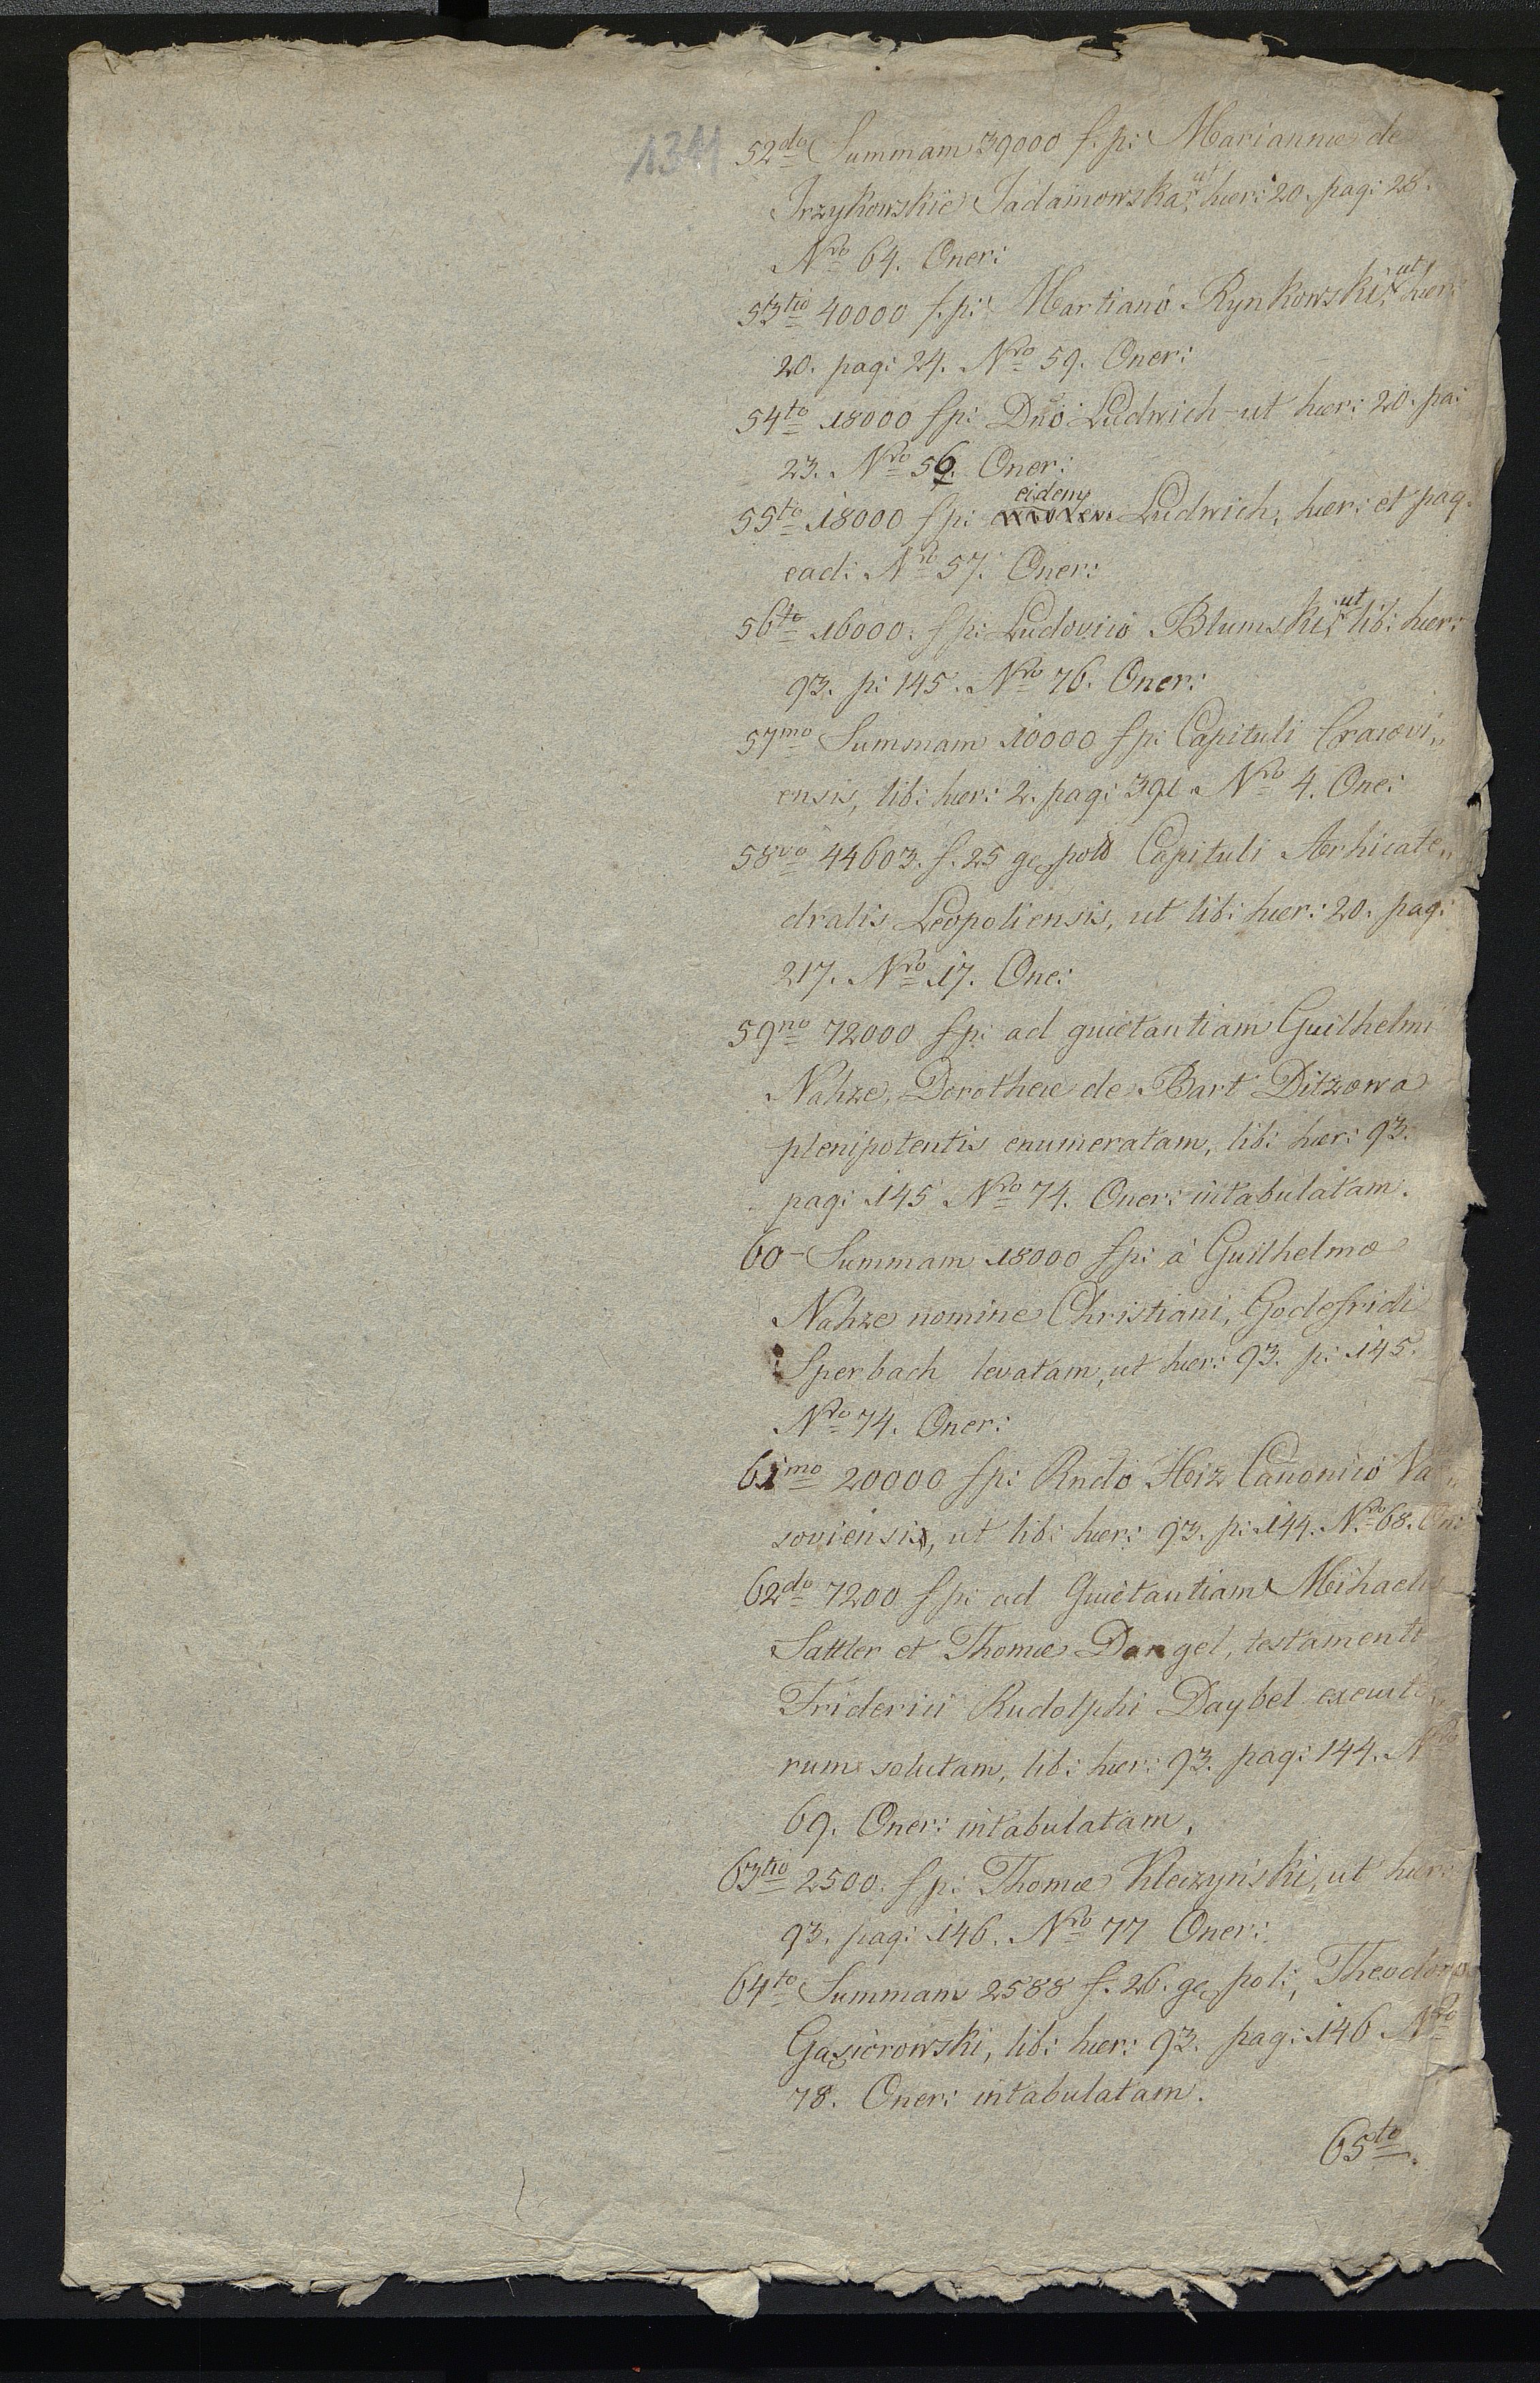 1311
52do Summam 39000 f. p: Mariannæ de
Jrzykowskie Jadamowska, ut hær: 20. pag: 28.
Nro 64. Oner:
53tio 40000 f. p: Martiano Rynkowski, ut hær:
20. pag: 24. Nro 59. Oner:
54to 18000 fp: Dno Ludwich ut hær: 20. pa:
23. Nro 56. Oner:
55to 18000 fp: eidem Ludwich, hær: et pag.
ead: Nro 57. Oner:
56to 16000. fp: Ludovico Blumski, ut lib: hær:
93. p: 145. Nro 76. Oner:
57mo Summam 10000 fp: Capituli Cracovi„
ensis, lib: hær: 2. pag: 391. Nro 4. One:
58vo 44603. f. 25 gr pol Capituli Archicate„
dralis Leopoliensis, ut lib: hær: 20. pag:
217. Nro 17. One:
59no 72000 fp: ad quietantiam Guilhelmi
Nahze, Dorotheæ de Bart Ditzowa
plenipotentis enumeratam, lib: hær: 93.
pag: 145 Nro 74. Oner: intabulatam.
60- Summam 18000 fp: à Guilhelmo
Nahze nomine Christiani, Godefridi
Sperbach levatam, ut hær: 93. p: 145.
Nro 74. Oner:
61mo 20000 fp: Rndo Heiz Canonico Va„
soviensi, ut lib: hær: 93. p: 144. Nro 68. On:
62do 7200 fp: ad Quietantiam Michaelis
Sattler et Thomæ Dangel, testamenti
Friderici Rudolphi Daybel executo„
rum solutam, lib: hær: 93. pag: 144. Nro
69. Oner: intabulatam.
63tio 2500. fp: Thomæ Kleczyński, ut hær:
93. pag: 146. Nro 77 Oner:
64to Summam 2588 f. 26. gr pol:, Theodoro
Gąsiorowski, lib: hær: 93. pag: 146 Nro
78. Oner: intabulatam.
65to.